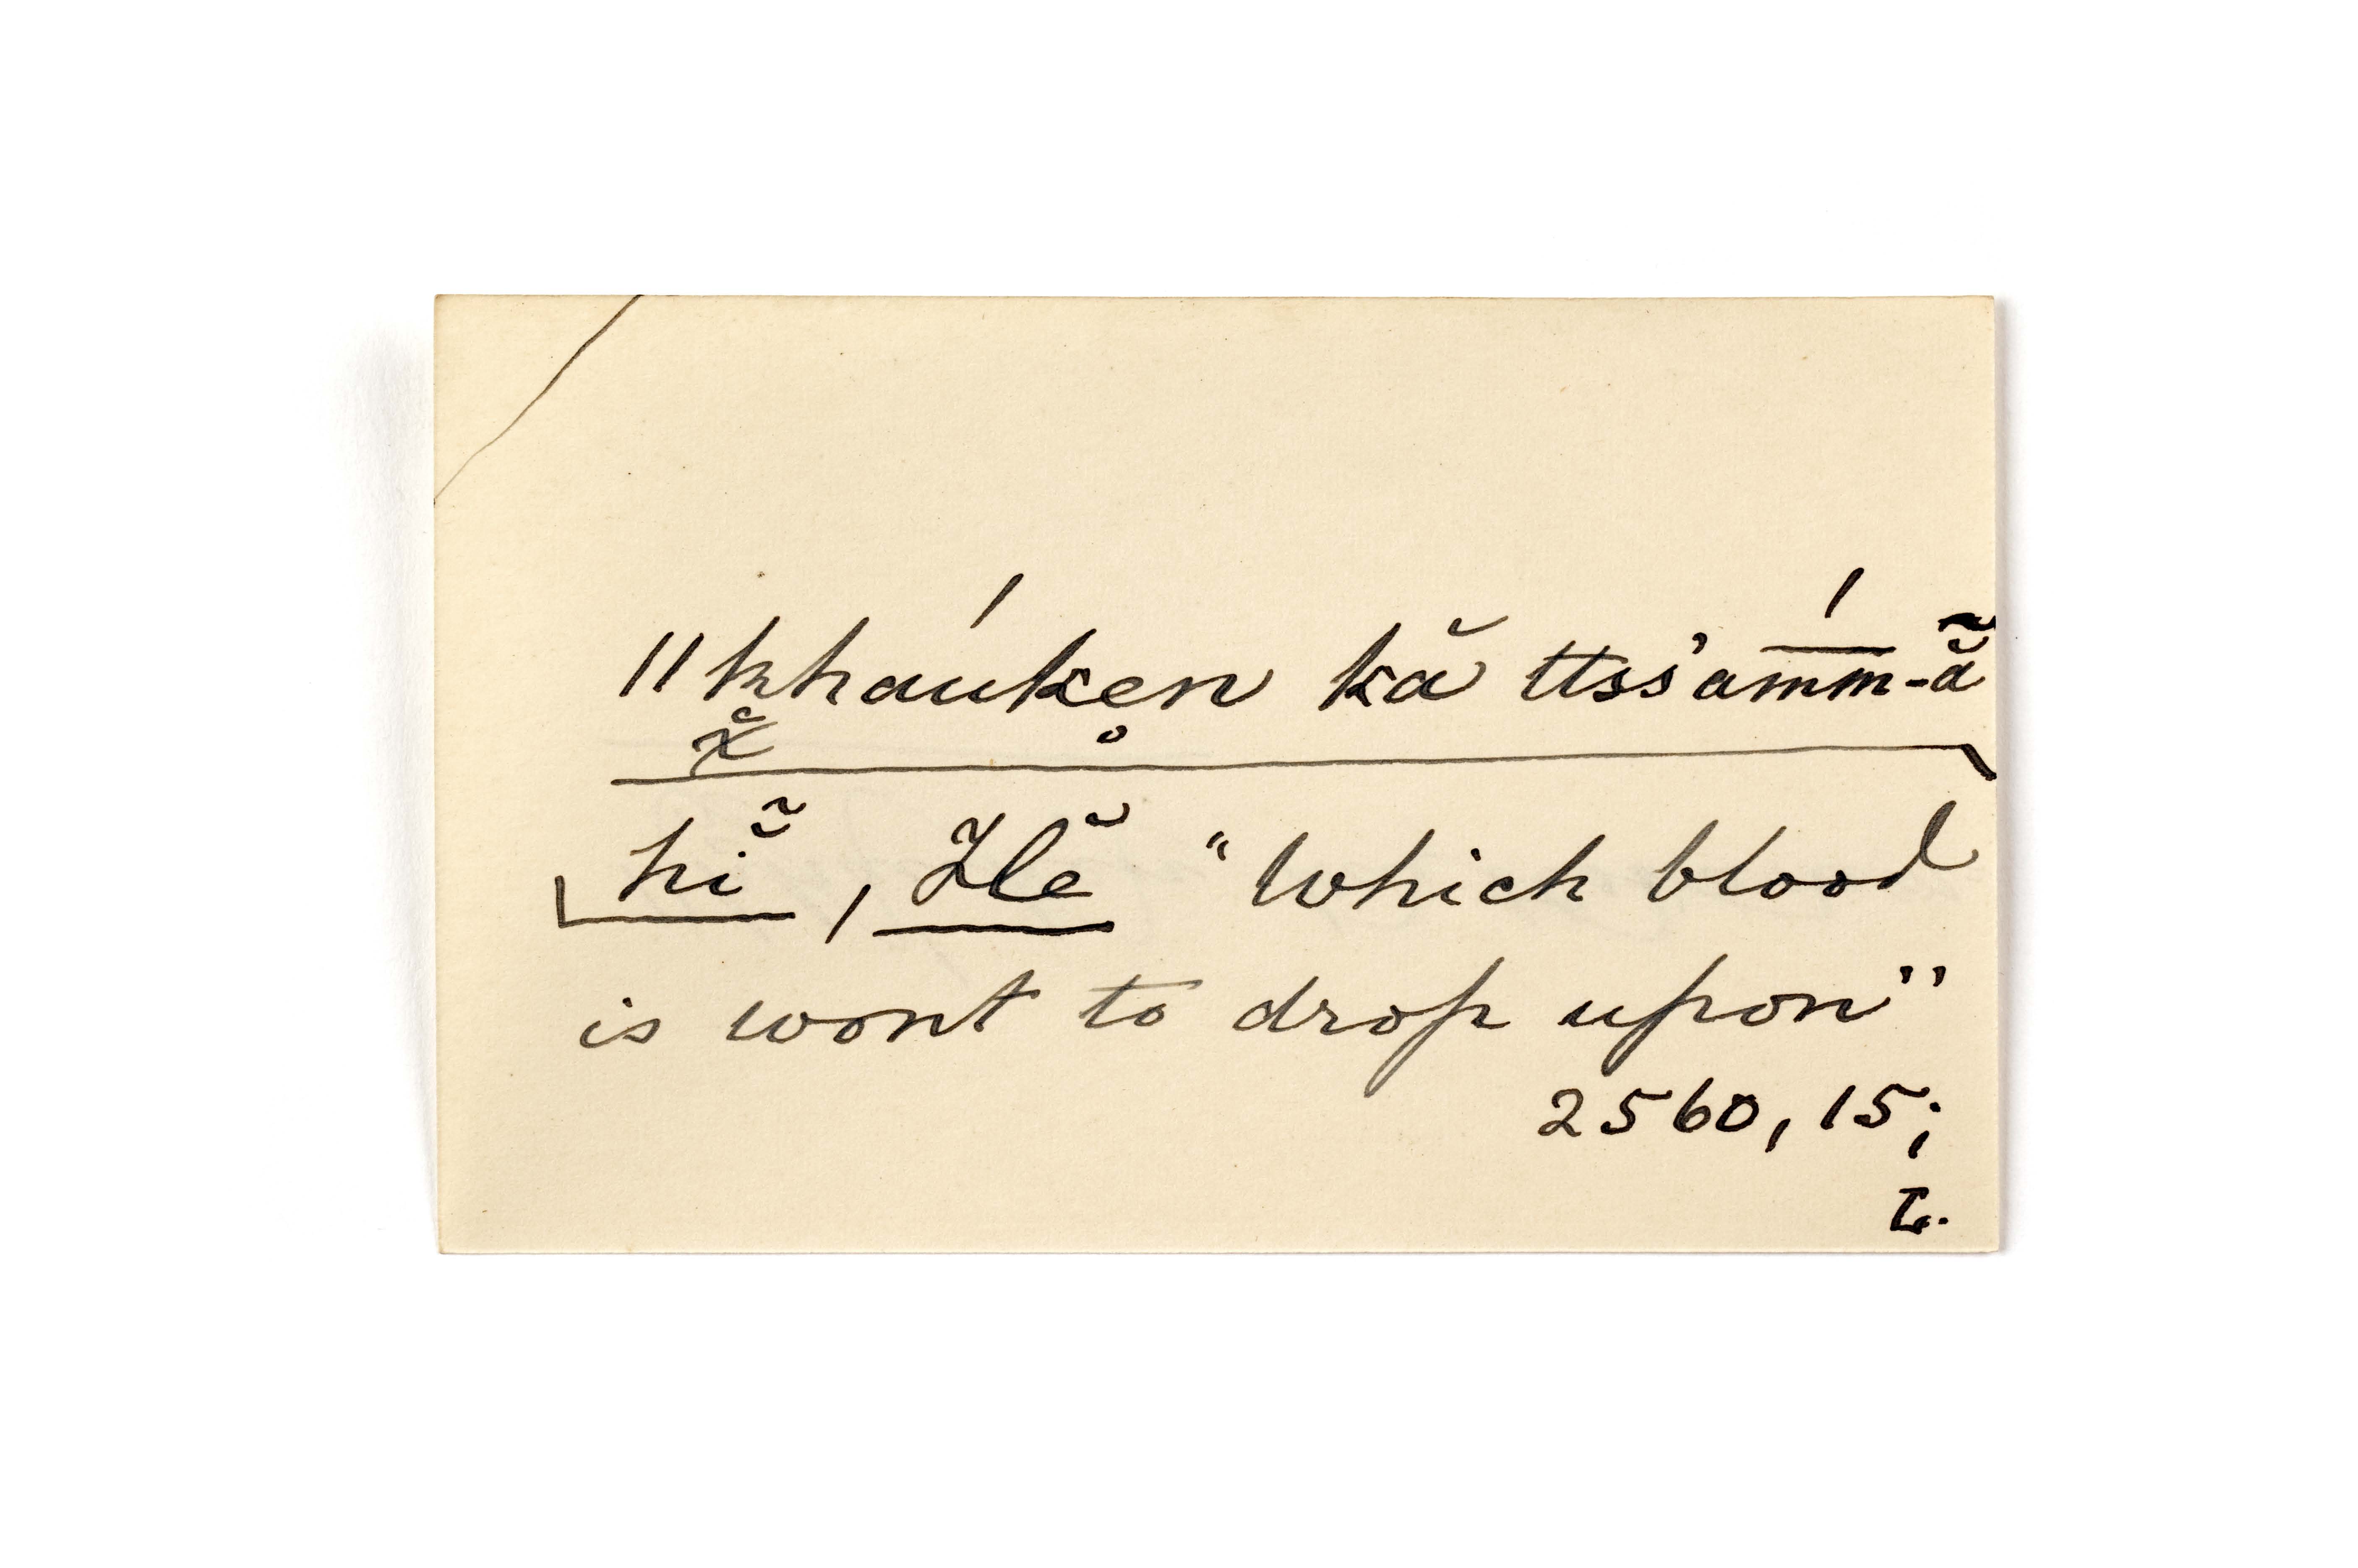 ||kháuken kă ttss'a͞mm-ẵ
hĭ̃, Hĕ "Which blood
is wont to drop upon"
2560, 15;
L.